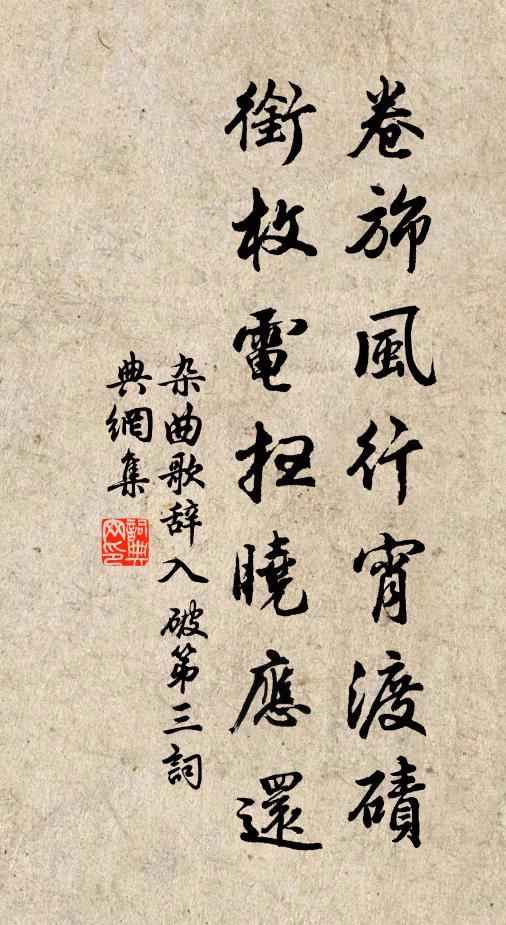 卷旆風行宵渡磧
銜枚電扫曉應還
杂曲歌辞入破第三詞
典網集
詞典網印